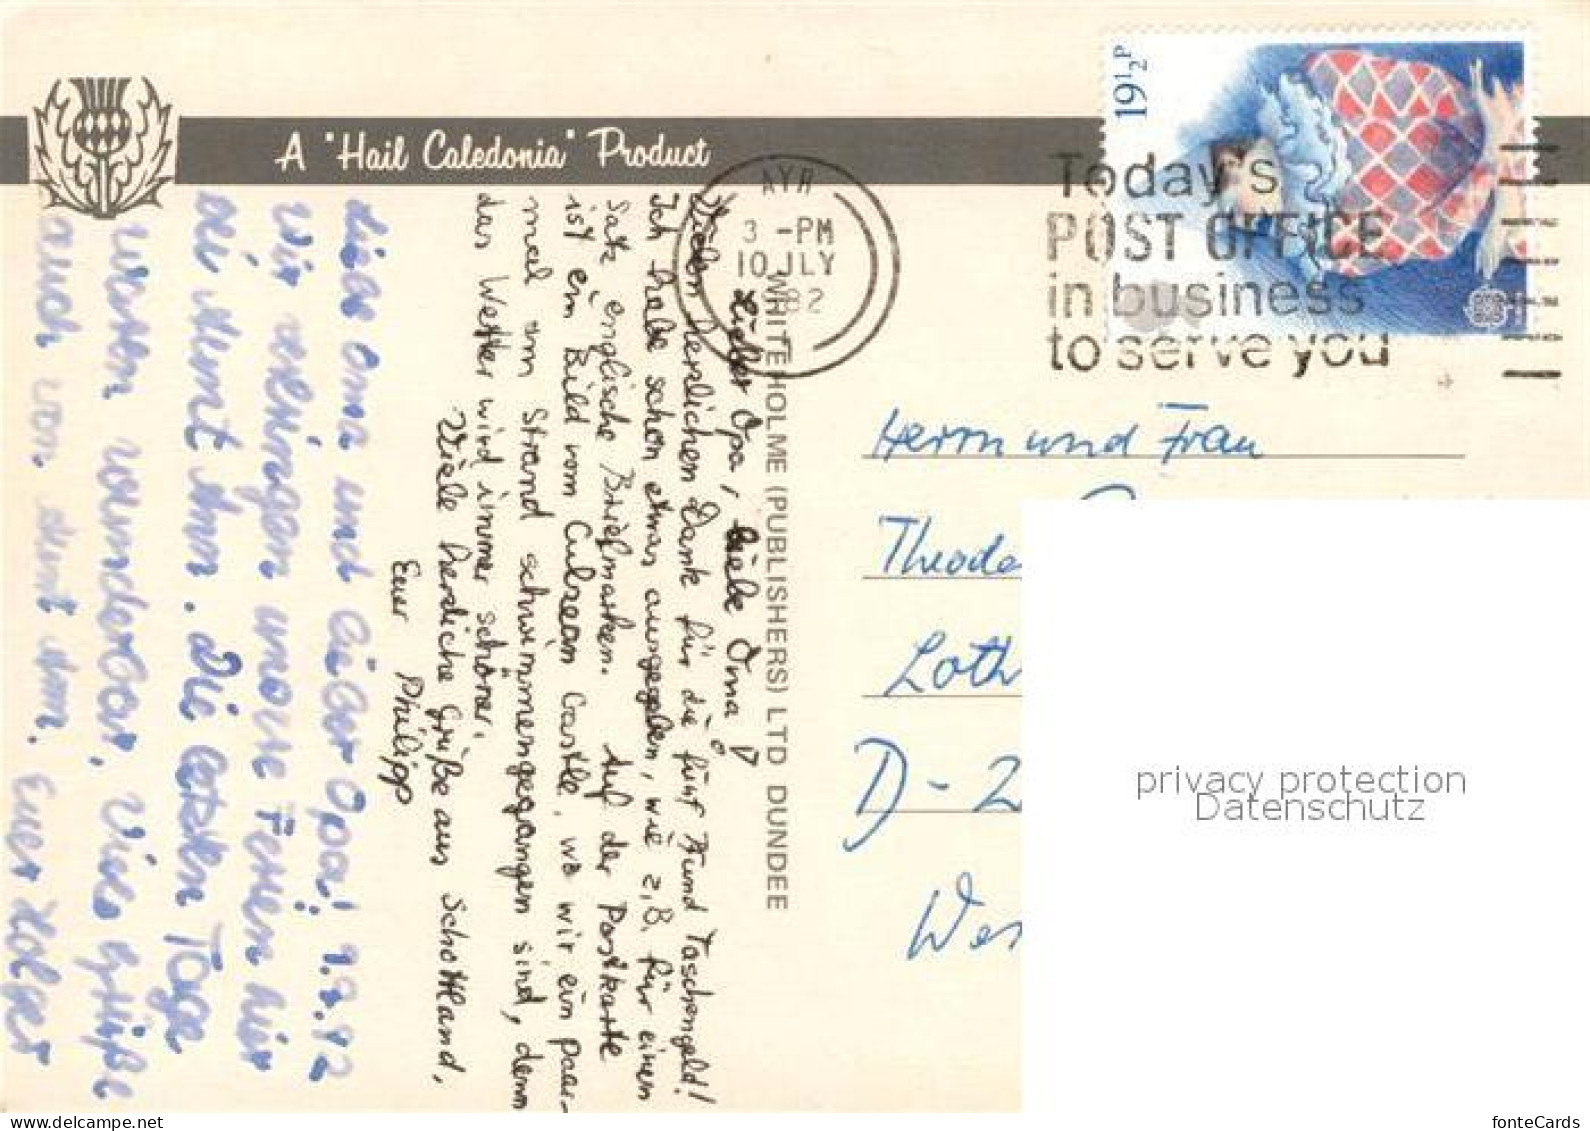 A "Hail Caledonia" Product
19½P
AYR
3 -PM
10 JLY
82
Today's
POST OFFICE
in business
to serve you
WHITEHOLME (PUBLISHERS) LTD DUNDEE
Lieber Opa, liebe Oma!
Vielen herzlichen Dank für die fünf Pfund Taschengeld!
Ich habe schon etwas ausgegeben, wie z.B. für einen
Satz englische Briefmarken. Auf der Postkarte
ist ein Bild vom Culzean Castle, wo wir ein paar-
mal am Strand schwimmengegangen sind, denn
das Wetter wird immer schöner.
Viele herzliche Grüße aus Schottland,
Euer Philipp
Liebe Oma und lieber Opa! 9.7.82
Wir verbringen unsere Ferien hier
bei Aunt Ann. Die letzten Tage
waren wunderbar. Viele Grüße
auch von Aunt Ann. Euer Holger
Herrn und Frau
Theodo
Loth
D-2
Wes
privacy protection
Datenschutz
fonteCards